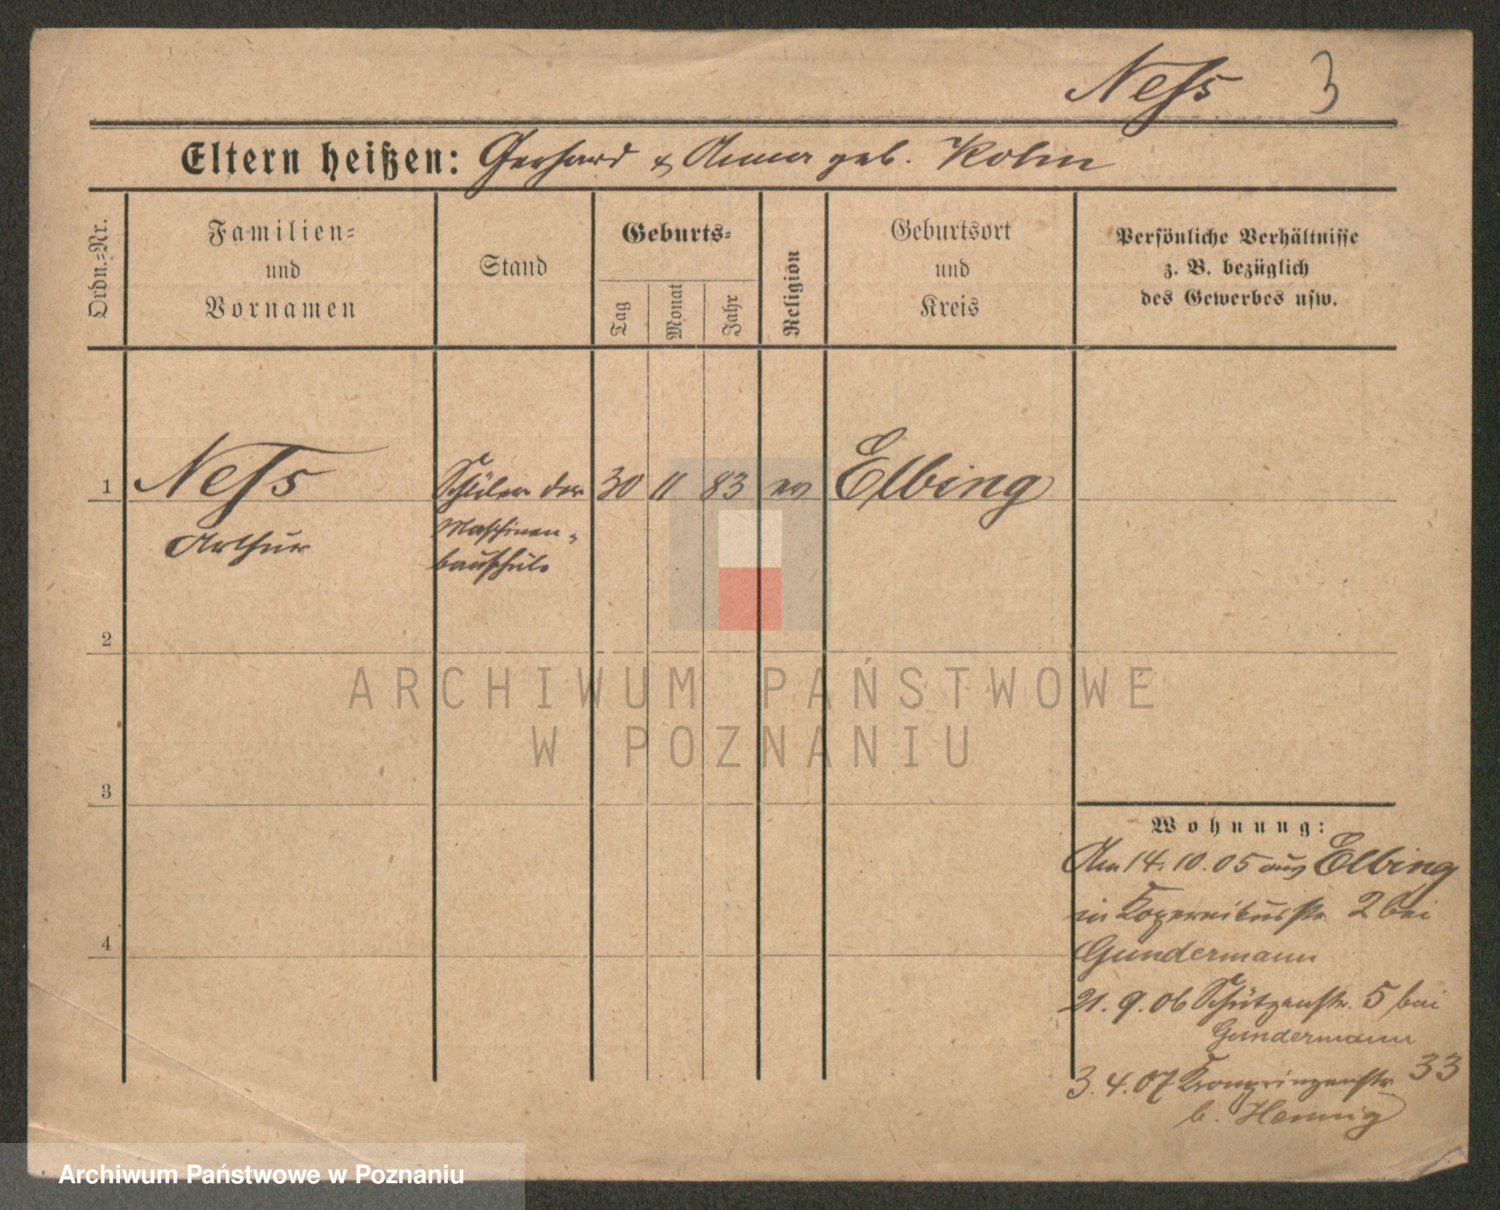 Ness 3
Eltern heißen: Gerhard & Anna geb. Kohn
Ordn.-Nr.
Familien-
und
Vornamen
Stand
Geburts-
Tag
Monat
Jahr
Religion
Geburtsort
und
Kreis
Persönliche Verhältnisse
z. B. bezüglich
des Gewerbes usw.
1 Ness Schüler der 30 11 83 ev Elbing
Arthur Maschinen-
bauschule
2
3
4
Wohnung:
Am 14. 10. 05 aus Elbing
in Kopernikusstr. 2 bei
Gundermann
21. 9. 06 Schützenstr. 5 bei
Gundermann
3. 4. 07 Kronprinzenstr 33
b. Hennig
ARCHIWUM PAŃSTWOWE
W POZNANIU
Archiwum Państwowe w Poznaniu